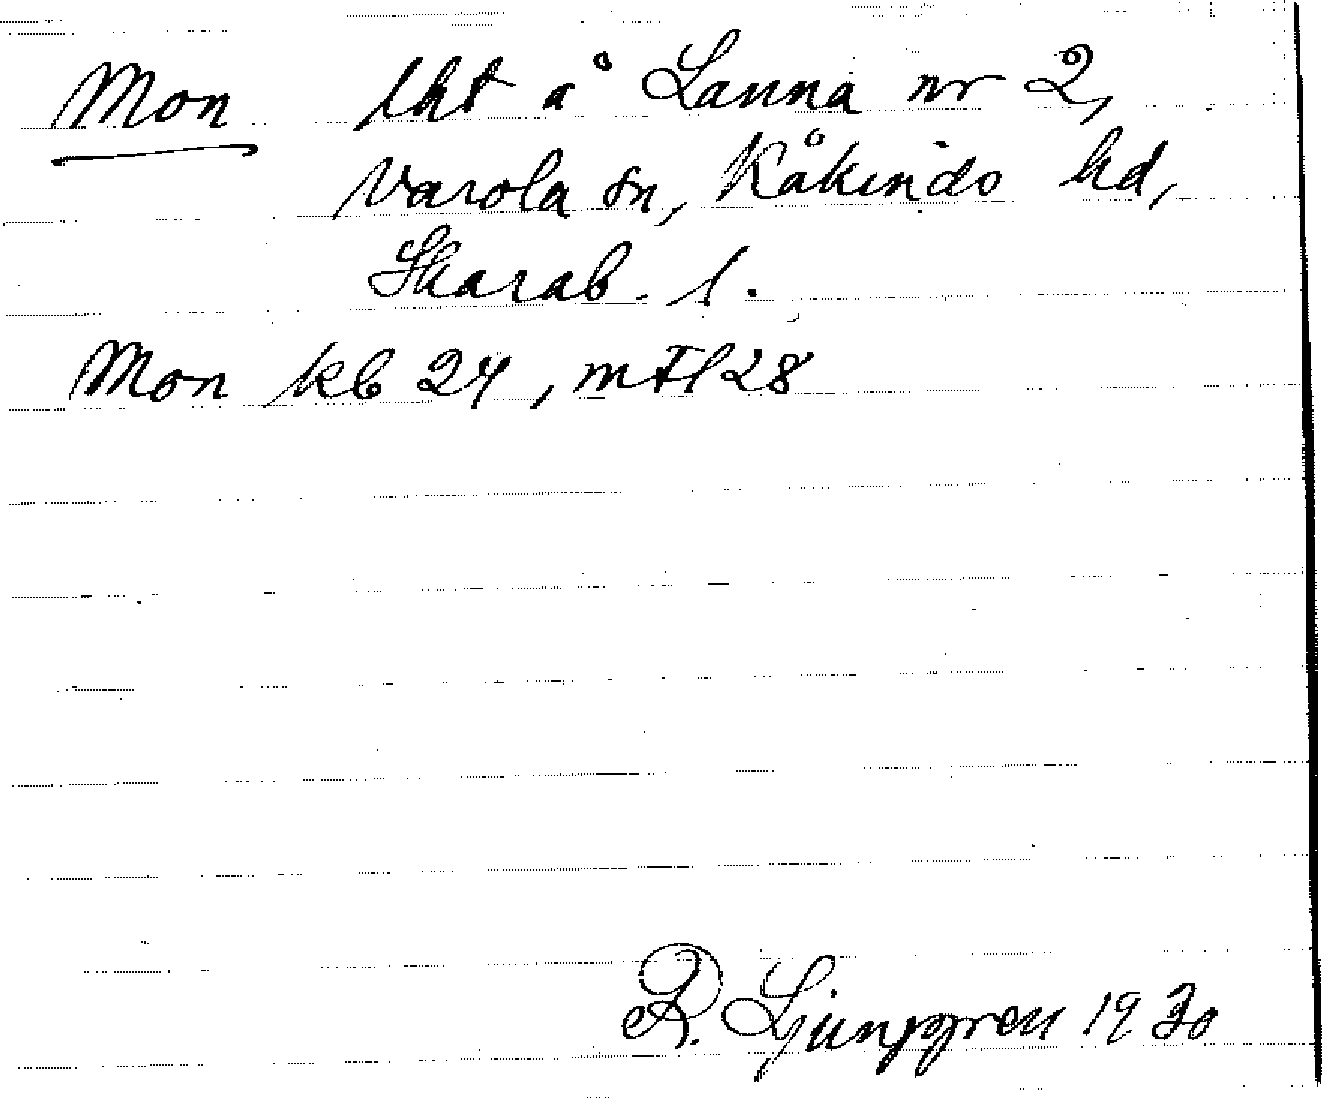 Mon lht å Lanna nr 2,
Varola sn, Kåkinds hd,
Skarab. l.
Mon kb 24, mtl 28
R. Ljunggren 1930